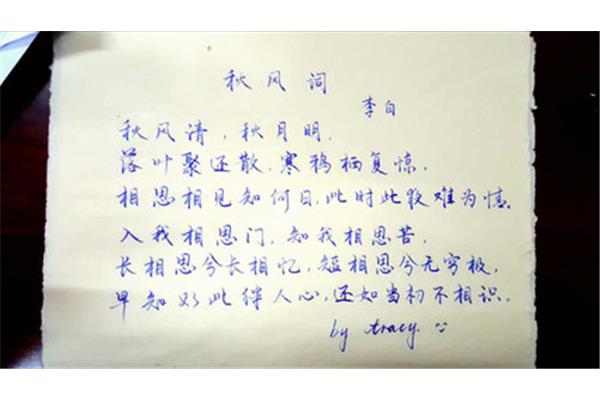 秋风词
李白
秋风清，秋月明.
落叶聚还散，寒鸦栖复惊.
相思相见知何日，此时此夜难为情.
入我相思门，知我相思苦.
长相思兮长相忆，短相思兮无穷极.
早知如此绊人心，还如当初不相识.
by tracy.